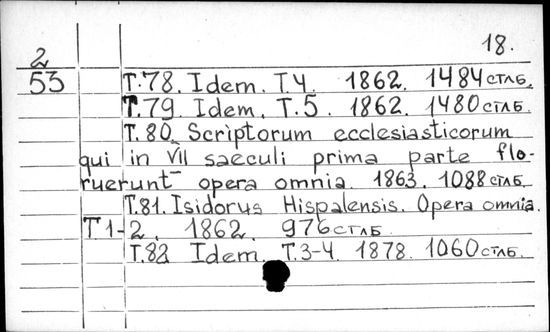 18.
2
53
Т.78. Idem. T.4. 1862. 1484 стлб.
Т.79. Idem. T.5. 1862. 1480 стлб.
Т.80. Scriptorum ecclesiasticorum
qui in VII saeculi prima parte flo-
ruerunt opera omnia. 1863. 1088 стлб.
Т.81. Isidorus Hispalensis. Opera omnia.
T 1-2. 1862. 976 стлб
Т.82 Idem. T.3-4. 1878. 1060 стлб.